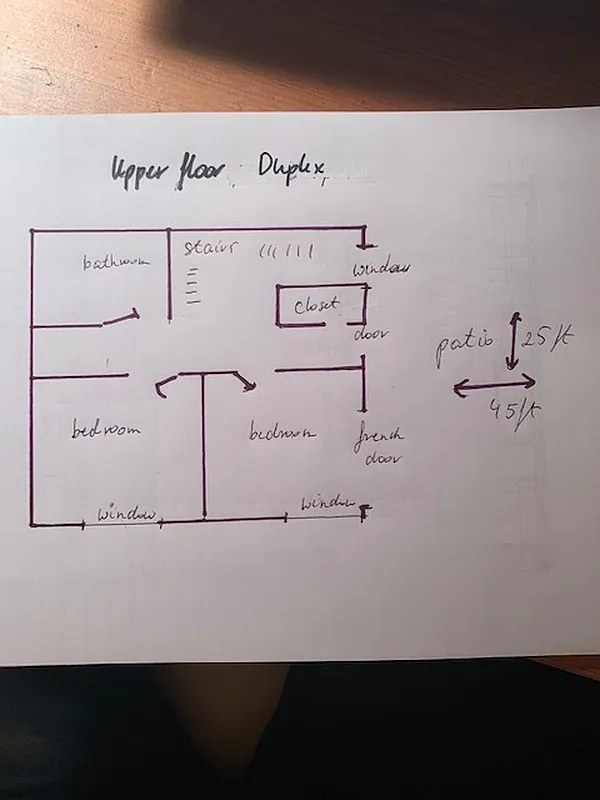 Upper floor Duplex
bathroom
stairs
window
closet
door
patio
25ft
45ft
bedroom
bedroom
french
door
window
window